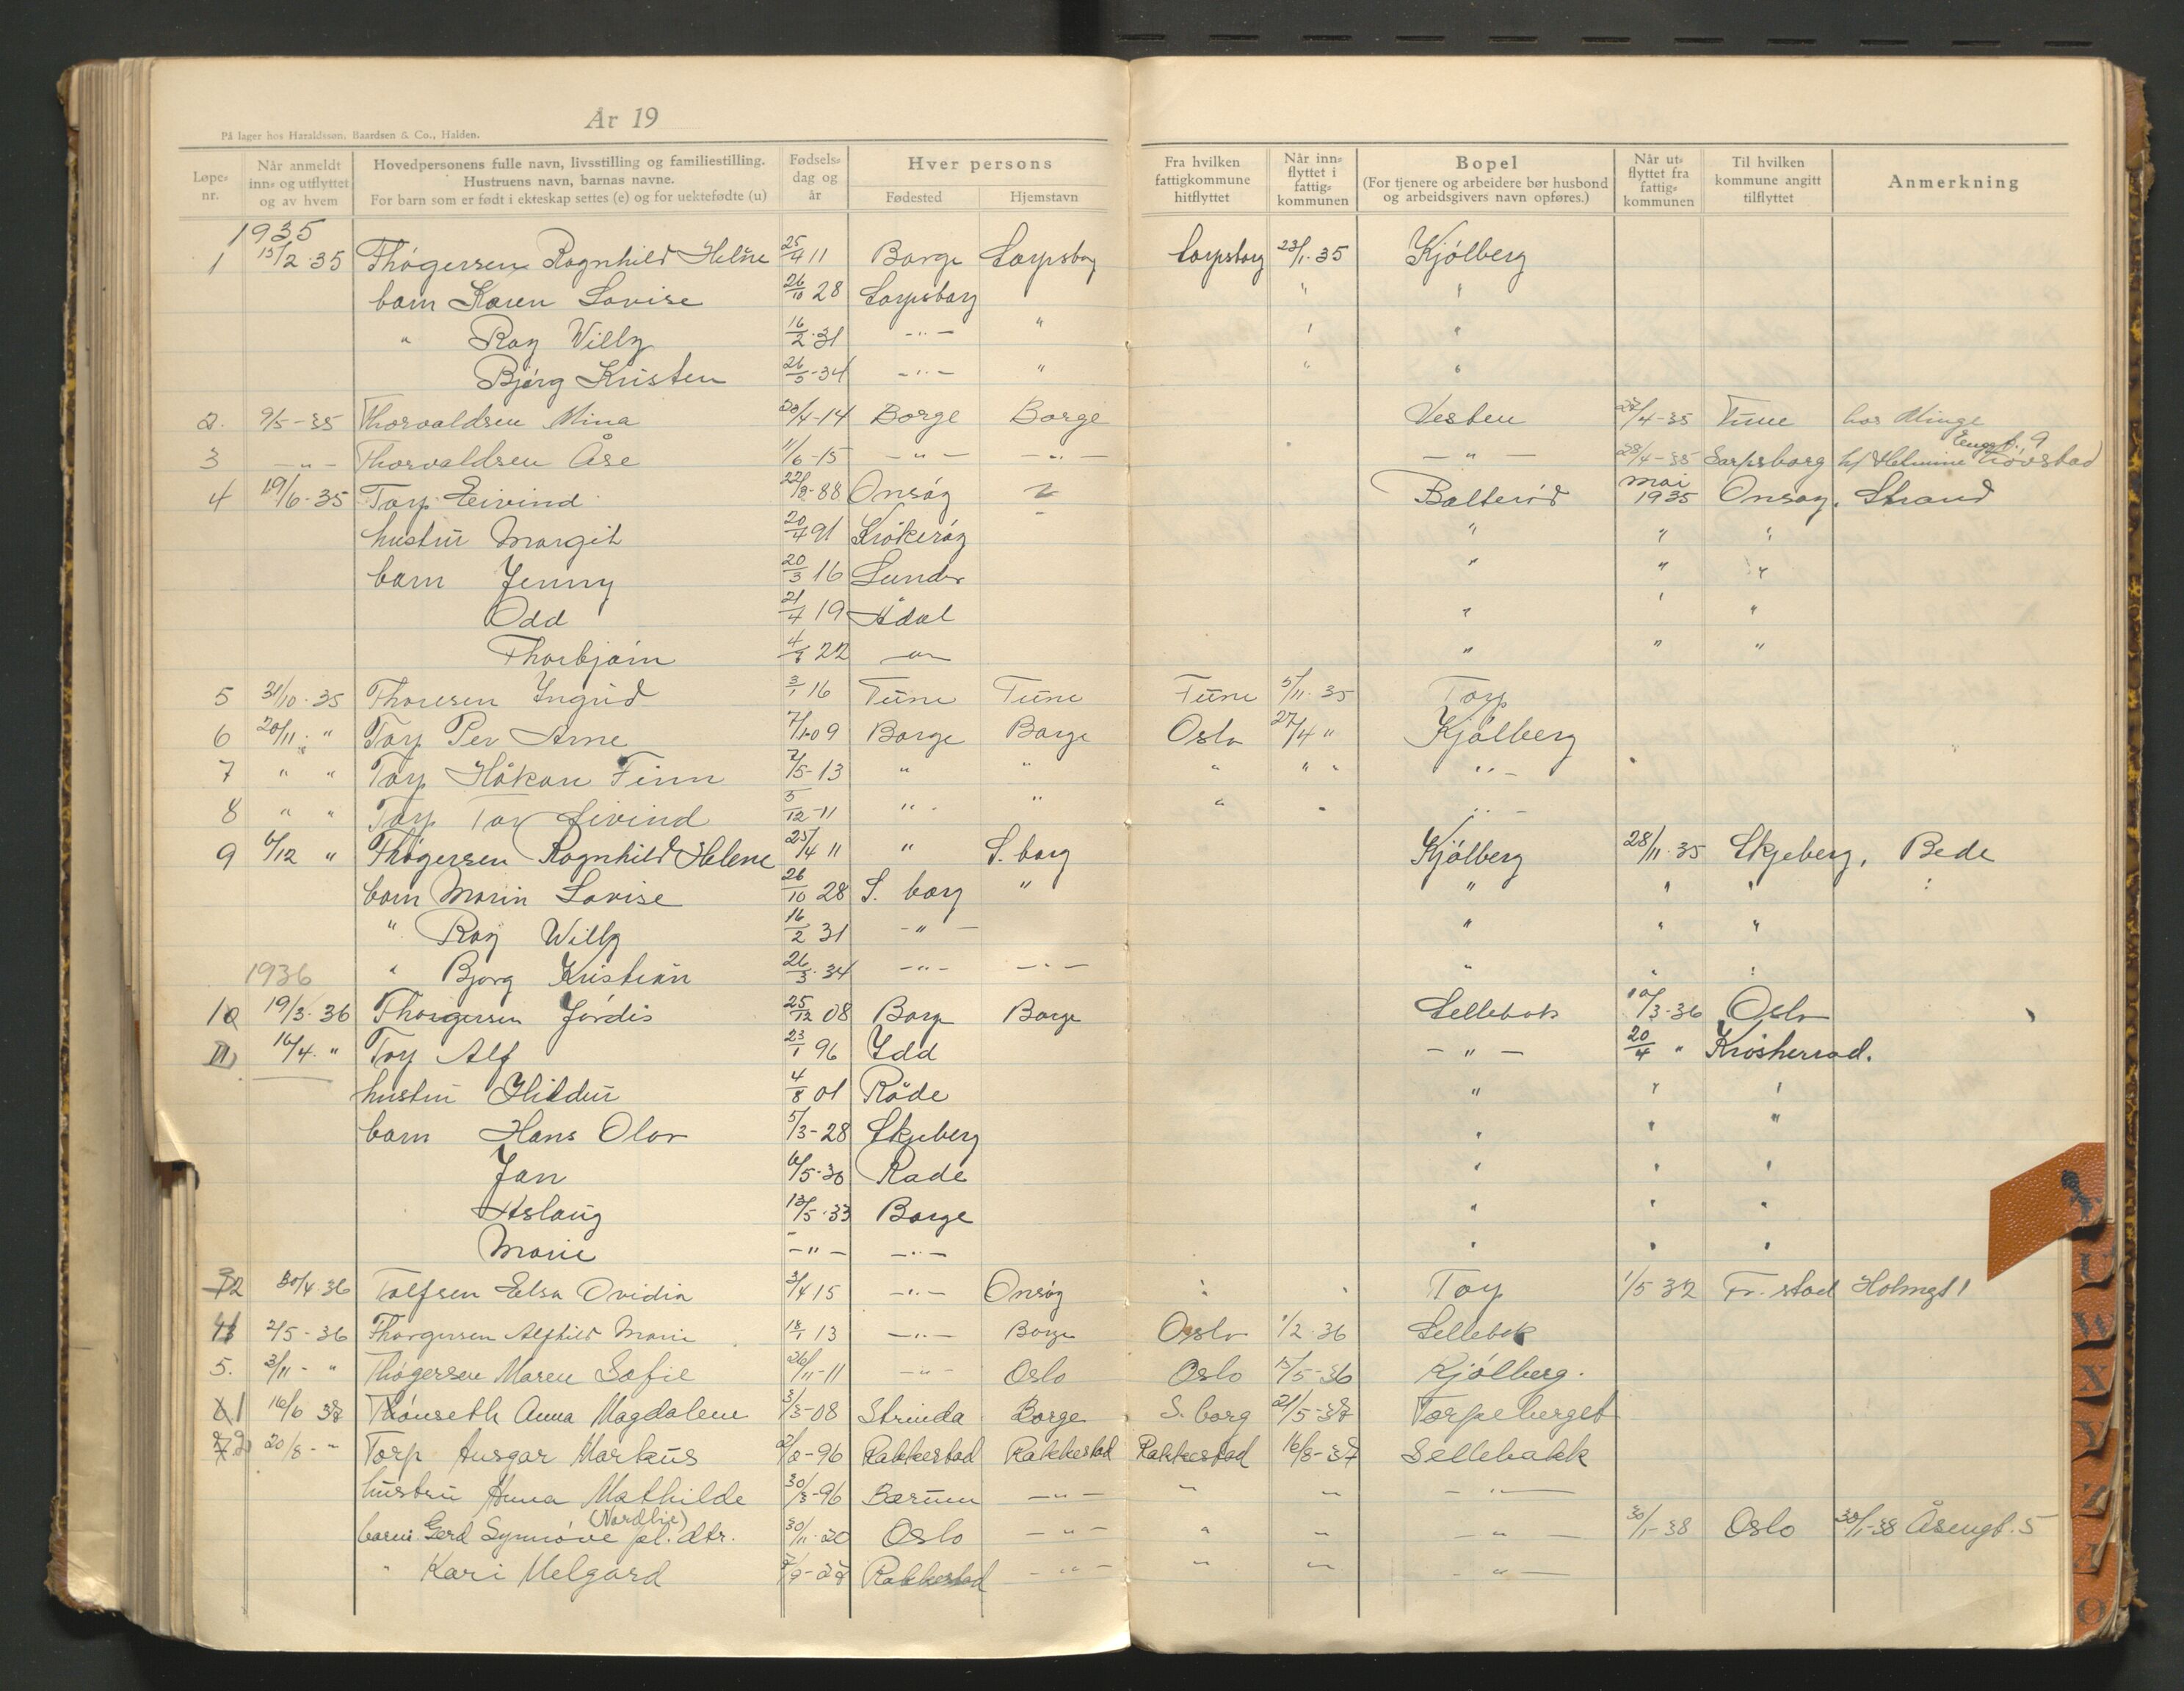 År 19
På lager hos Haraldssøn, Baardsen & Co., Halden.
Løpe-nr. Når anmeldt inn- og utflyttet og av hvem Hovedpersonens fulle navn, livsstilling og familiestilling. Hustruens navn, barnas navne. For barn som er født i ekteskap settes (e) og for uektefødte (u) Fødsels-dag og år Hver persons Fødested Hjemstavn Fra hvilken fattigkommune hitflyttet Når inn-flyttet i fattig-kommunen Bopel (For tjenere og arbeidere bør husbond og arbeidsgivers navn opføres.) Når ut-flyttet fra fattig-kommunen Til hvilken kommune angitt tilflyttet Anmerkning
1935
1 15/2.35 Thøgersen Ragnhild Helene 25/4 11 Borge Sarpsborg Sarpsborg 23/1.35 Kjølberg
barn Karen Lovise 26/10 28 Sarpsborg " " "
" Roy Willy 16/2.31 -"- " " "
Bjørg Kristen 26/3-34 -"- " " "
2. 9/5-35 Thorvaldsen Mina 20/4-14 Borge Borge Vesten 28/4-35 Tune hos Minge
3 -"- Thorvaldsen Åse 11/6-15 -"- -"- -"- 28/4-35 Sarpsborg h/ Helmine Løvstad Engst. 9
4 19/6.35 Torp Eivind 22/8-88 Onsøy Balterød mai 1935 Onsøy. Strand
hustru Margit 20/4 91 Kråkerøy " " "
barn Jenny 20/3 16 Sunds " " "
Odd 21/4 19 Ådal " " "
Thorbjørn 4/8 22 -"- " " "
5 31/10.35 Thoresen Ingrid 3/1 16 Tune Tune Tune 5/11.35 Torp
6 20/11 " Torp Per Arne 7/1-09 Borge Borge Oslo 27/4 " Kjølberg
7 " " Torp Håkon Finn 2/5-13 " " " " " "-
8 " " Torp Tor Eivind 5/12-11 " " " " "-
9 6/12 " Thøgersen Ragnhild Helene 25/4 11 " S.borg Kjølberg 28/11.35 Skjeberg, Bede
barn Marin Lovise 26/10 28 S. borg " " " " "
" Roy Willy 16/2 31 -"- " " "
1936 " Bjørg Kristian 26/3.34 -"- -"- " " "
10 19/3.36 Thorgersen Jørdis 25/12 08 Borge Borge Sellebak 10/3.36 Oslo
11 16/4. " Torp Alf 23/1 96 Idd -"- 20/4 " Krøsherrad.
hustru Hildur 4/8 01 Råde " " "
barn Hans Olav 5/3-28 Skjeberg " " "
Jan 6/5.30 Råde " " "
Aslaug 13/5.33 Borge " " "
Marie -"- -"- " " "
12 30/4.36 Tolfsen Elsa Ovidia 3/4 15 -"- Onsøy Torp 1/5 37 Fr.stad Holmegt 1
4 2/5-36 Thorgersen Alfhild Marie 18/1 13 -"- Borge Oslo 1/2.36 Sellebak
5. 3/11- " Thøgersen Maren Sofie 26/11-11 -"- Oslo Oslo 15/5-36 Kjølberg.
1 16/6 37 Thonseth Anna Magdalene 3/3-08 Strinda Borge S.borg 21/5-37 Torpeberget
2 20/8- " Torp Ansgar Markus 2/8-96 Rakkestad Rakkestad Rakkestad 16/8-37 Sellebakk
hustru Anna Mathilde 30/3-96 Bærum -"- " " -"-
barn Gerd Synnøve (Nordlie) pl.dtr. 30/11-20 Oslo -"- " " -"- 30/1-38 Oslo 30/1-38 Åsengt. 5
" Kari Helgard Rakkestad -"- " " -"-